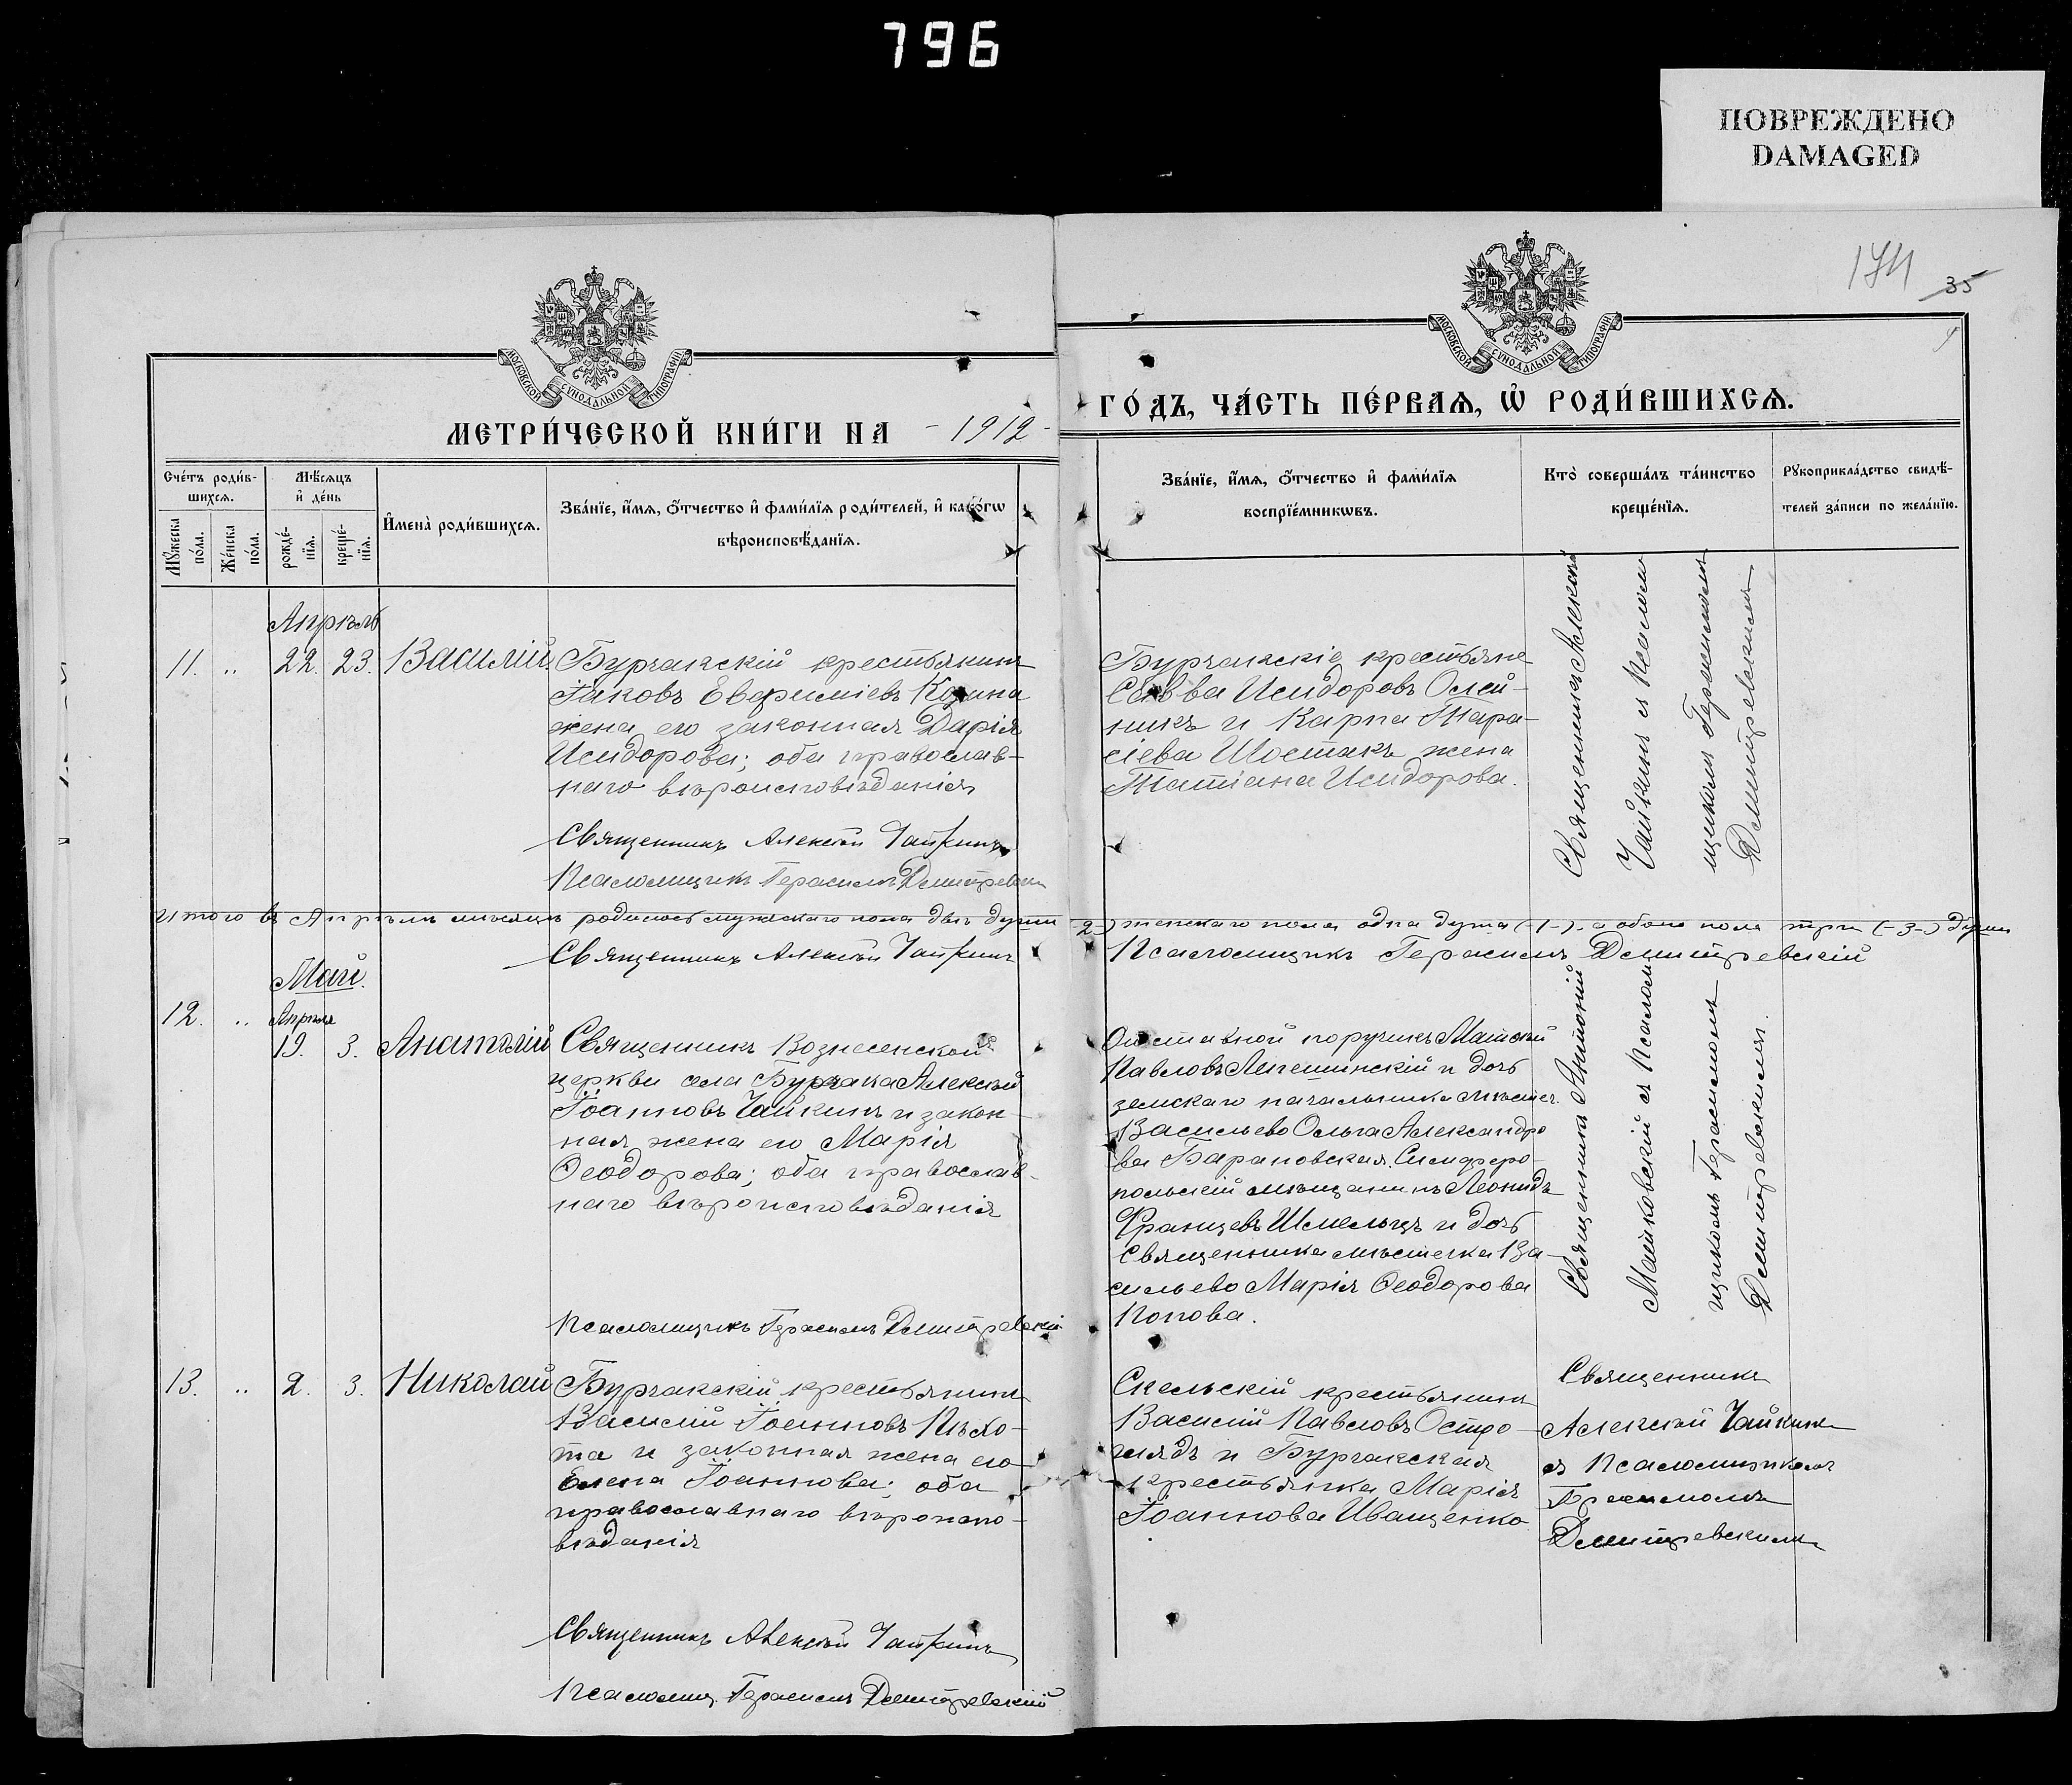 796
ПОВРЕЖДЕНО
DAMAGED
174
35
МОСКОВСКОЙ СѴНОДАЛЬНОЙ ТИПОГРАФІИ
МОСКОВСКОЙ СѴНОДАЛЬНОЙ ТИПОГРАФІИ
МЕТРИ́ЧЕСКОЙ КНИ́ГИ НА - 1912 -
ГО́ДЪ, ЧА́СТЬ ПЕ́РВАѦ, Ѡ҆ РОДИ́ВШИХСѦ.
Сче́тъ роди́в-
шихсѧ.
Мꙋ́жеска по́ла.
Же́нска по́ла.
Мѣ́сѧцъ
и҆ де́нь
рожде́-
нїѧ.
креще́-
нїѧ.
И҆мена̀ роди́вшихсѧ.
Зва́нїе, и҆́мѧ, ѻ҆́тчество и҆ фами́лїѧ роди́телей, и҆ како́гѡ
вѣроисповѣ́данїѧ.
Зва́нїе, и҆́мѧ, ѻ҆́тчество и҆ фами́лїѧ
воспрїе́мникѡвъ.
Кто̀ соверша́лъ та́инство
креще́нїѧ.
Рꙋкоприкла́дство свидѣ́-
телей за́писи по жела́нїю.
Апрѣль
11. „ 22. 23. Василій
Бурчакскій крестьянинъ
Іаковъ Евфиміевъ
жена его законная Дарія
Исидорова; оба православ-
наго вѣроисповѣданія
Священникъ Алексѣй Чайкинъ
Псаломщикъ Герасимъ Дмитревскій
Бурчакскіе крестьяне
Савва Исидоровъ Олей-
никъ и Карпа Тара-
сіева Шостакъ жена
Татіана Исидорова.
Священникъ Алексѣй
Чайкинъ съ Псалом
щикомъ Герасимомъ
Дмитревскимъ
Итого въ Апрѣлѣ мѣсяцѣ родилось мужескаго пола двѣ души -2-) женскаго пола одна душа (-1-), а обоего пола три (-3-) души
Священникъ Алексѣй Чайкинъ
Псаломщикъ Герасимъ Дмитревскій
Май.
12. „ Апрѣля
19. 3. Анатолій
Священникъ Вознесенской
церкви села Бурчака Алексѣй
Іоанновъ Чайкинъ и закон-
ная жена его Марія
Ѳеодорова; оба православ-
наго вѣроисповѣданія
Псаломщикъ Герасимъ Дмитревскій
Отставной поручикъ Матвѣй
Павловъ и дочь
земскаго начальника мѣстеч.
Васильево Ольга Александро
ва Барановская. Симферо-
польскій мѣщанинъ Леонидъ
Францевъ Шмельцъ и дочь
Священника мѣстечка Ва-
сильево Марія Ѳеодорова
Попова.
Священникъ Антоній
Матковскій съ Псалом
щикомъ Герасимомъ
Дмитревскимъ.
13. „ 2. 3. Николай
Бурчакскій крестьянинъ
Василій Іоанновъ Пѣхо-
та и законная жена его
Елена Іоаннова; оба
православнаго вѣроиспо-
вѣданія
Священникъ Алексѣй Чайкинъ
Псаломщ. Герасимъ Дмитревскій
Скельскій крестьянинъ
Василій Павловъ Остро-
глядъ и Бурчакская
крестьянка Марія
Іоаннова Иващенко
Священникъ
Алексѣй Чайкинъ
съ Псаломщикомъ
Герасимомъ
Дмитревскимъ